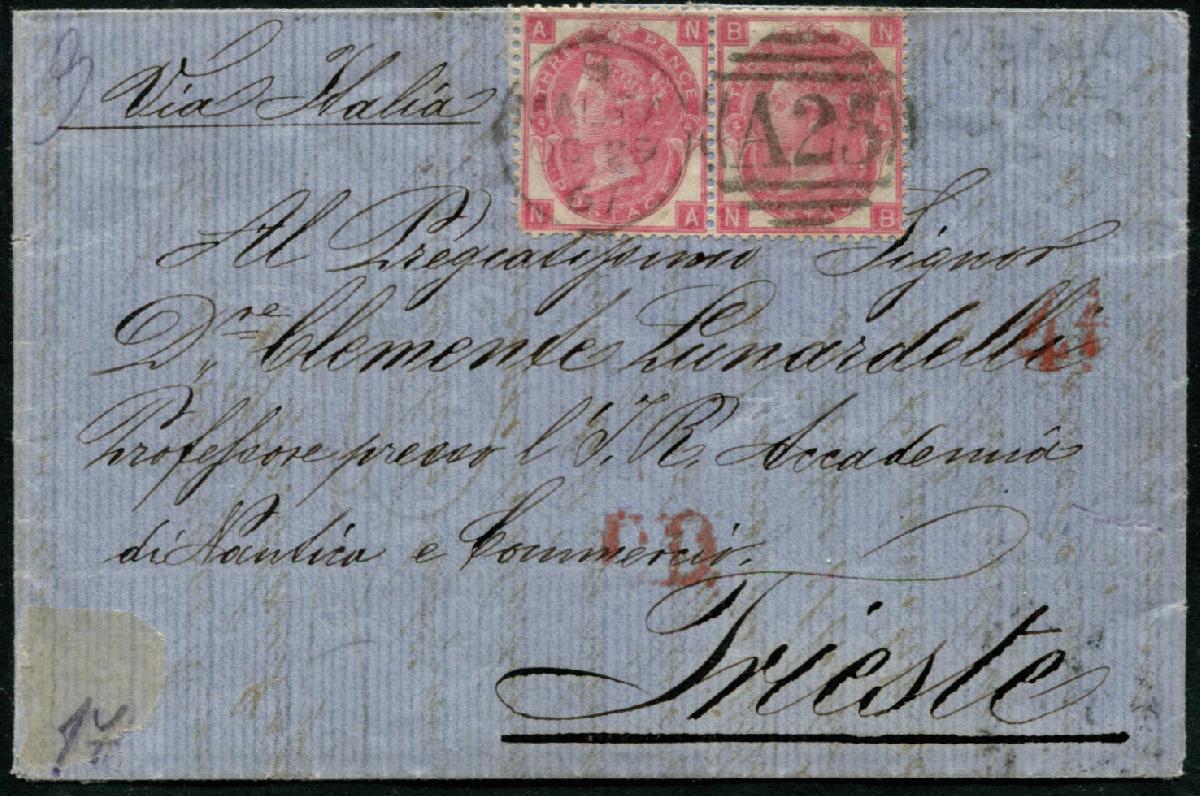 Via Italia
A N B N
THREE PENCE
A25
67
POSTAGE
N A N B
Al Pregiatissimo Signor
Dre Clemente Lunardelli
4d
Professore presso l'I. R. Accademia
di Nautica e Commercio.
P.D.
Trieste